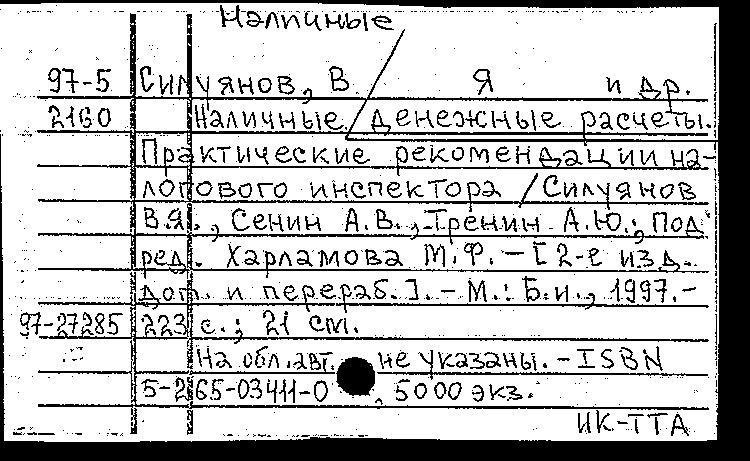 Наличные
97-5 Силуянов, В Я и др.
2160 Наличные денежные расчеты.
Практические рекомендации на-
логового инспектора / Силуянов
В.Я., Сенин А.В., Тренин А.Ю.; Под
ред. Харламова М.Ф. - [2-е изд.
доп. и перераб.]. - М.: Б.и., 1997. -
97-27285 223 с.; 21 см.
На обл. авт. не указаны. - ISBN
5-265-03411-0 , 5000 экз.
ИК-ТТА